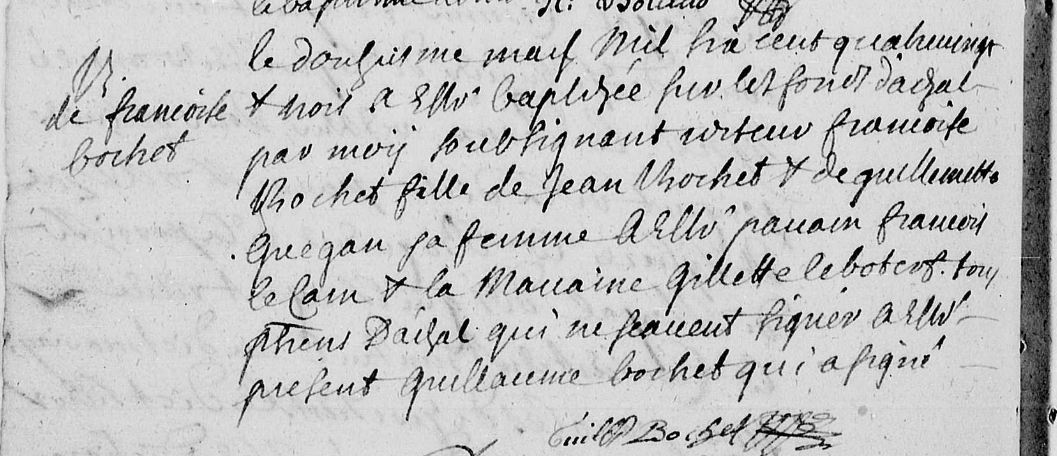 le baptisme
le douziesme mars Mil six cent quatrevingt
B.
de francoise
bochet
& trois a esté baptizée sur les fonds d'arzal
par moy soubsignant recteur francoise
Bochet fille de Jean Bochet & de guillemette
guegan sa femme a esté parain francois
le Cam & la Maraine gillette le boterf. tous
phiens d'arzal qui ne scavent signer a esté
present guillaume bochet qui a signé
Guill Bochet